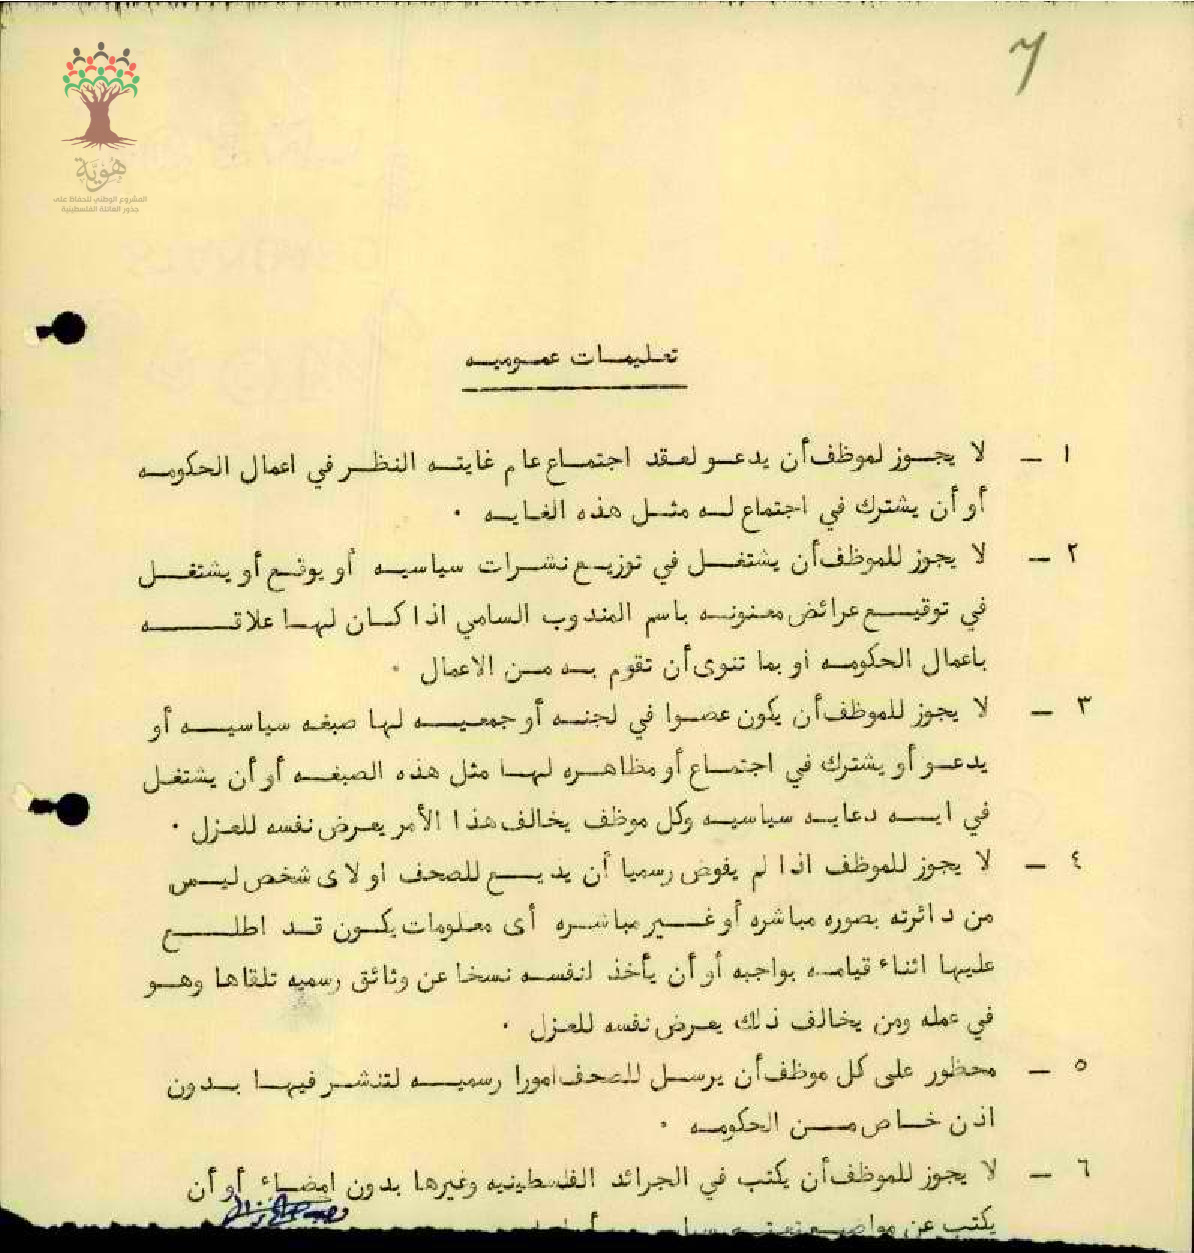 ٦
هُويَّة
المشروع الوطني للحفاظ على
جذور العائلة الفلسطينية
تعليمات عموميه
١ — لا يجوز لموظف أن يدعو لعقد اجتماع عام غايته النظر في اعمال الحكومه
أو أن يشترك في اجتماع له مثل هذه الغايه .
٢ — لا يجوز للموظف أن يشتغل في توزيع نشرات سياسيه أو يوقع أو يشتغل
في توقيع عرائض معنونه باسم المندوب السامي اذا كان لها علاقه
باعمال الحكومه او بما تنوى أن تقوم به من الاعمال .
٣ — لا يجوز للموظف أن يكون عضوا في لجنه أو جمعيه لها صبغه سياسيه أو
يدعو أو يشترك في اجتماع أو مظاهره لها مثل هذه الصبغه أو أن يشتغل
في ايه دعايه سياسيه وكل موظف يخالف هذا الأمر يعرض نفسه للعزل .
٤ — لا يجوز للموظف اذا لم يفوض رسميا أن يذيع للصحف او لاى شخص ليس
من دائرته بصوره مباشره أو غير مباشره أى معلومات يكون قد اطلع
عليها اثناء قيامه بواجبه أو أن يأخذ لنفسه نسخا عن وثائق رسميه تلقاها وهو
في عمله ومن يخالف ذلك يعرض نفسه للعزل .
٥ — محظور على كل موظف أن يرسل للصحف امورا رسميه لتنشر فيها بدون
اذن خاص من الحكومه .
٦ — لا يجوز للموظف أن يكتب في الجرائد الفلسطينيه وغيرها بدون امضاء أو أن
يكتب عن مواضيع تعتبر